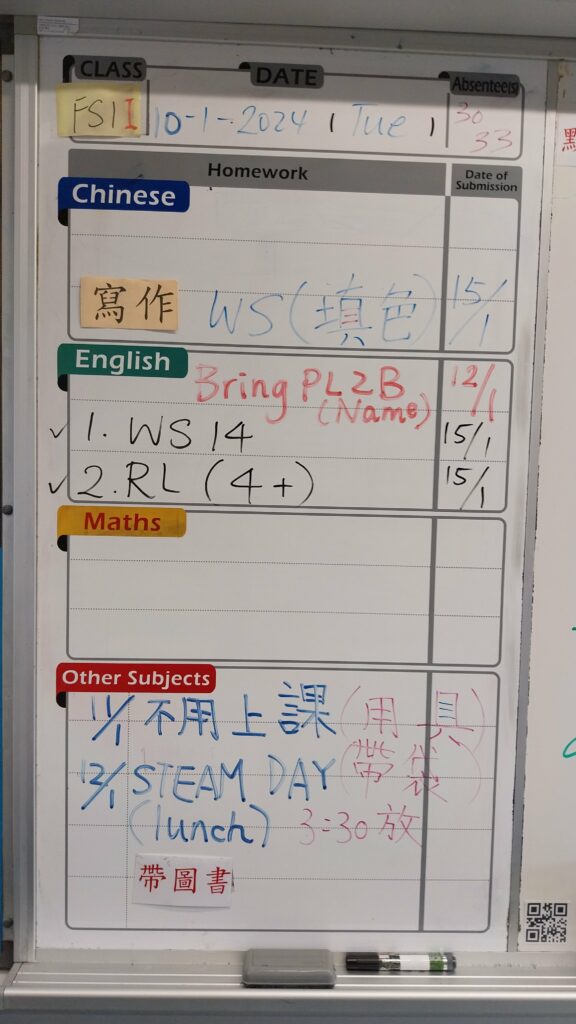 CLASS DATE Absentee(s)
FS1I 10-1-2024 ( Tue ) 30
33
Homework Date of Submission
Chinese
寫作 WS (填色) 15/1
English
Bring PL2B 12/1
(Name)
✓ 1. WS 14 15/1
✓ 2. RL (4+) 15/1
Maths
Other Subjects
11/1 不用上課 (用具)
12/1 STEAM DAY (帶袋)
(lunch) 3:30放
帶圖書